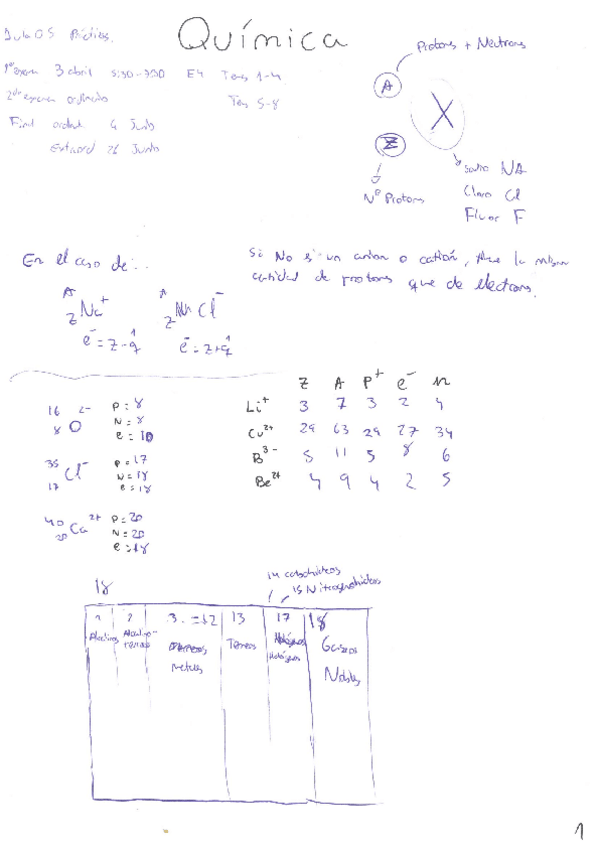 Aula 05 Prácticas.
Química
1er examen 3 abril 5:30-7:30 E4 Temas 1-4
2do examen ordinario Tem 5-8
Final ordinal 4 Junio
Extraord 26 Junio
Protons + Neutrons
A
X
Z
Nº Protons
Sodio NA
Cloro Cl
Fluor F
En el caso de...
Si No es un anion o catión, tiene la misma
cantidad de protons que de electrons.
A Z Na+
e- = Z-q
A Z Cl-
e- = Z+q
Z A P+ e- n
Li+ 3 7 3 2 4
Cu2+ 29 63 29 27 34
B3- 5 11 5 8 6
Be2+ 4 9 4 2 5
16 8 O 2-
P = 8
N = 8
e = 10
35 17 Cl-
P = 17
N = 18
e = 18
40 20 Ca 2+
P = 20
N = 20
e = 18
18
14 carbonideos
15 Nitrogenoideos
1 Alcalinos
2 Alcalino-terreos
3 - 12
metales
13 Terreos
17
Halógenos
18 Gases
Nobles
1